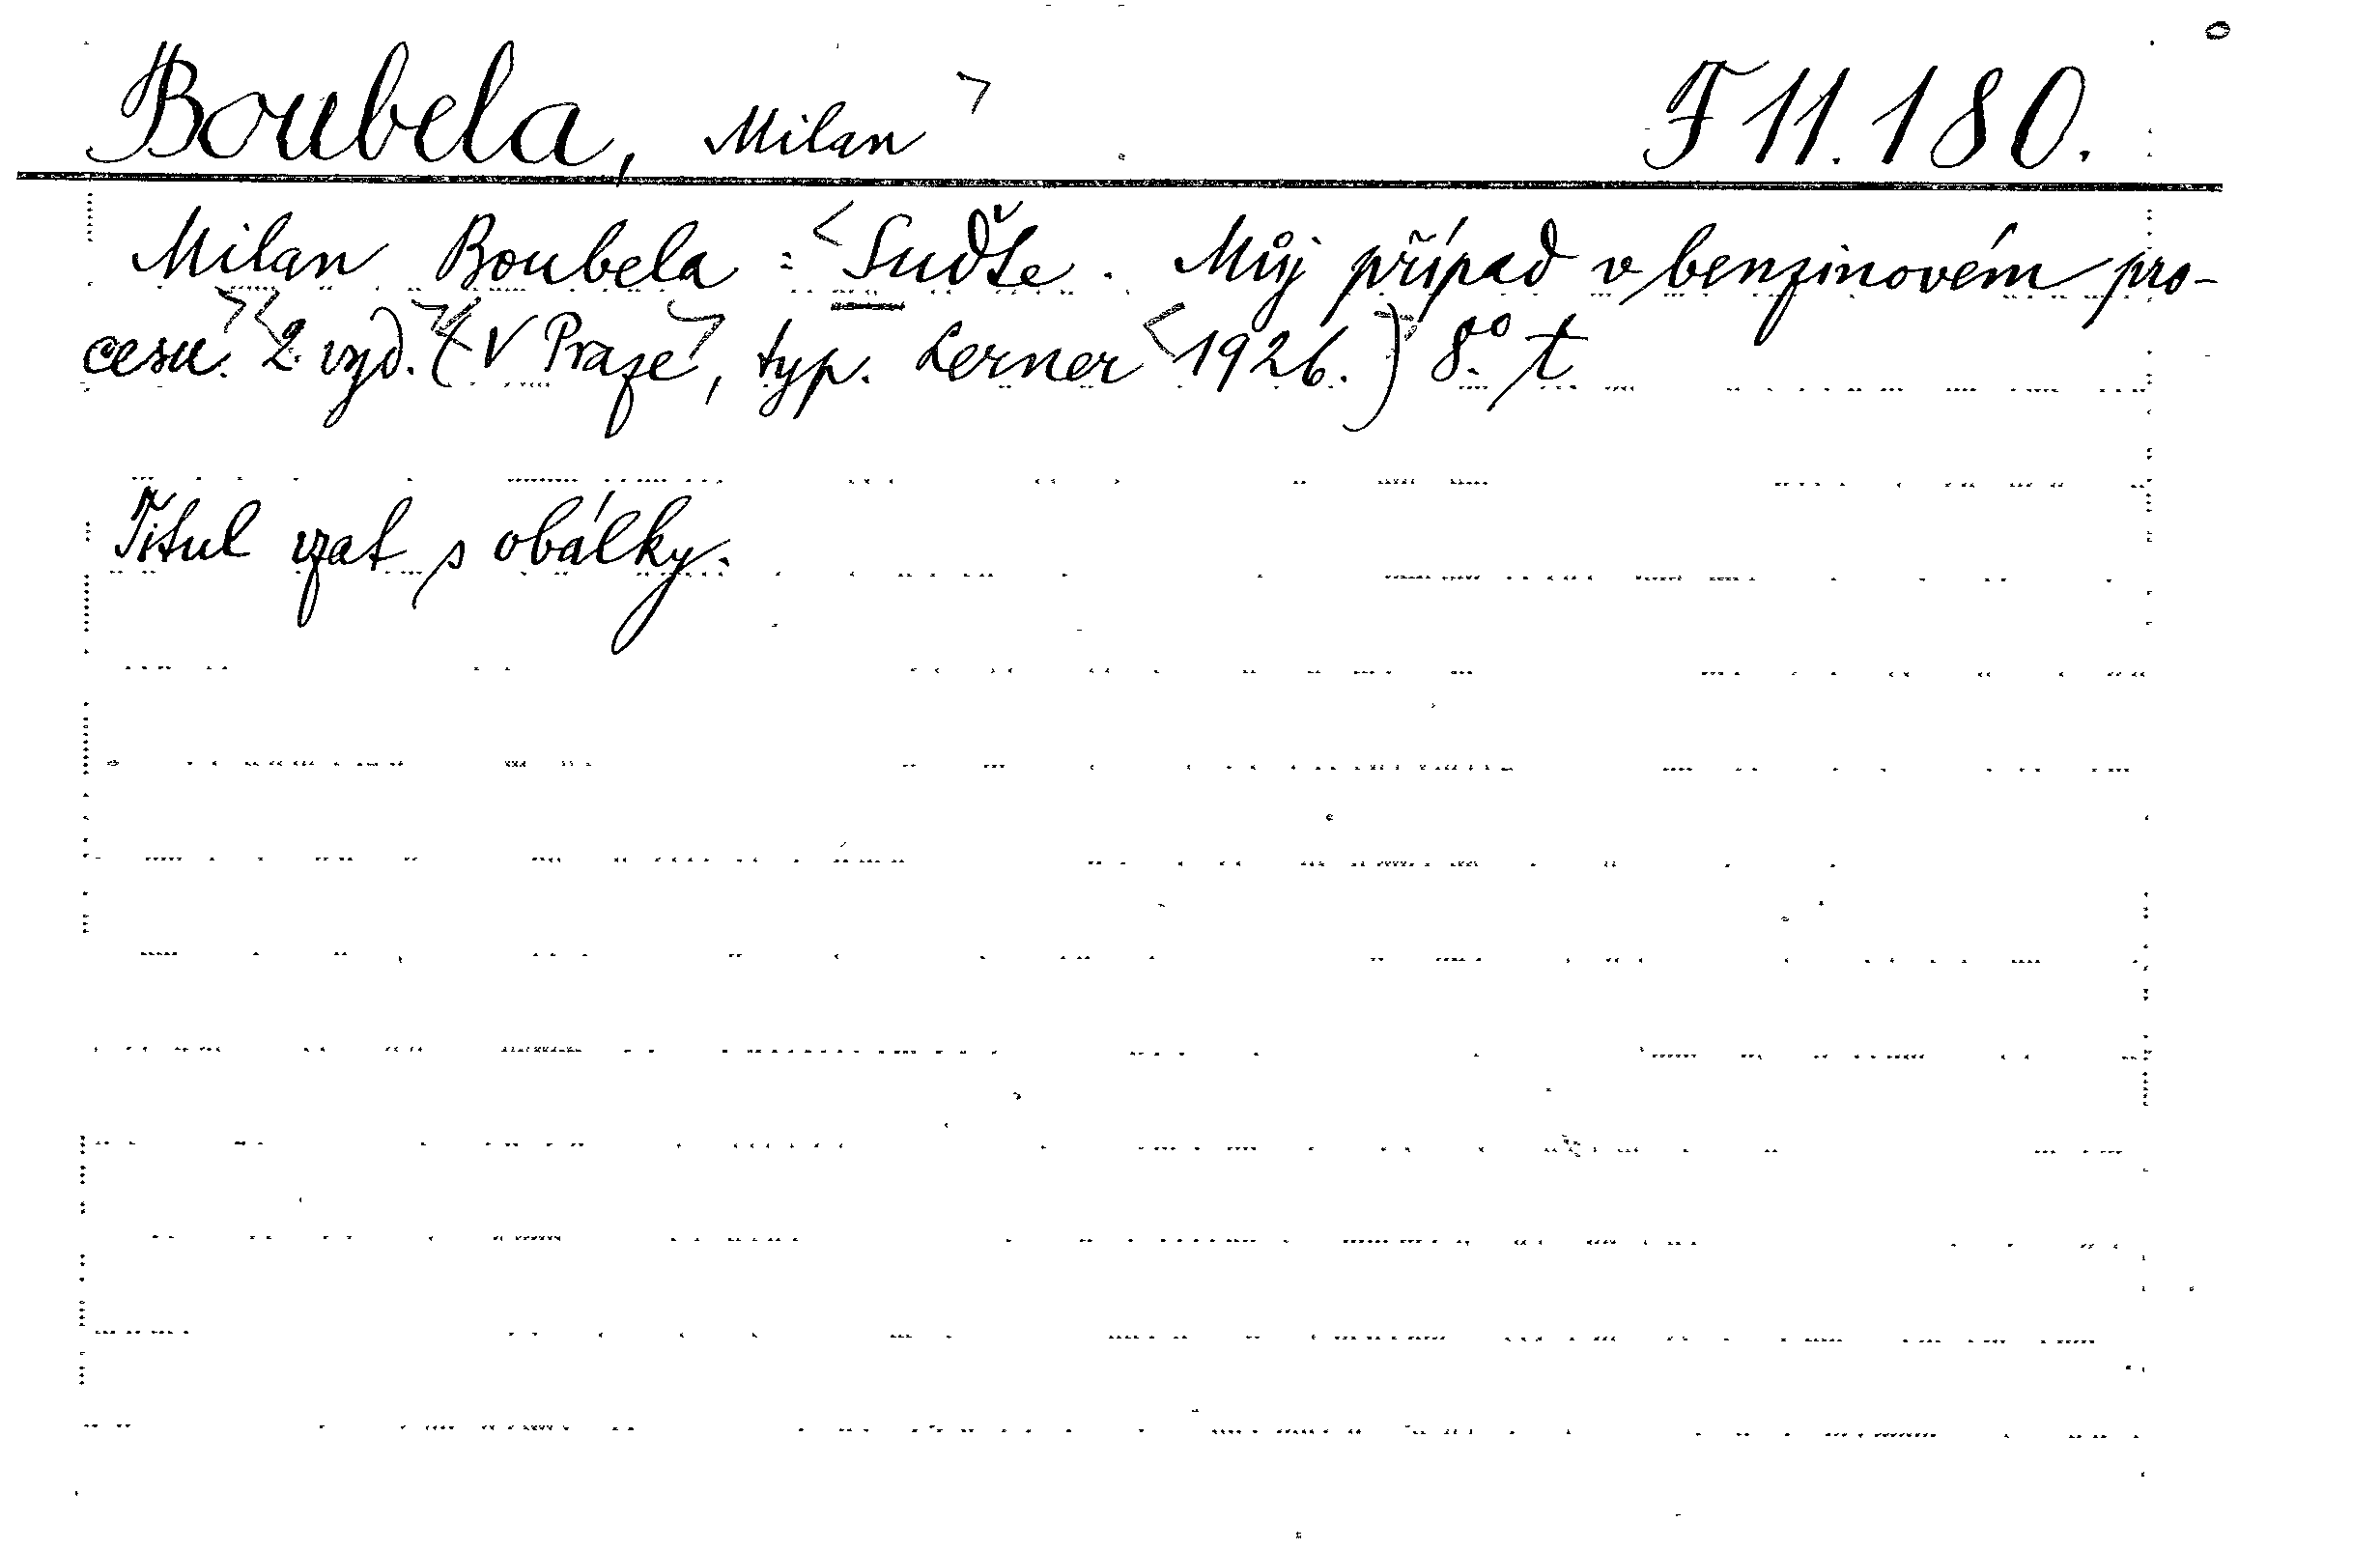 Boubela, Milan F 11.180.
Milan Boubela : Suďte. Můj případ v benzinovém pro-
cesu. 2. vyd. (V Praze, typ. Lerner 1926.) 8.° t
Titul vzat s obálky.